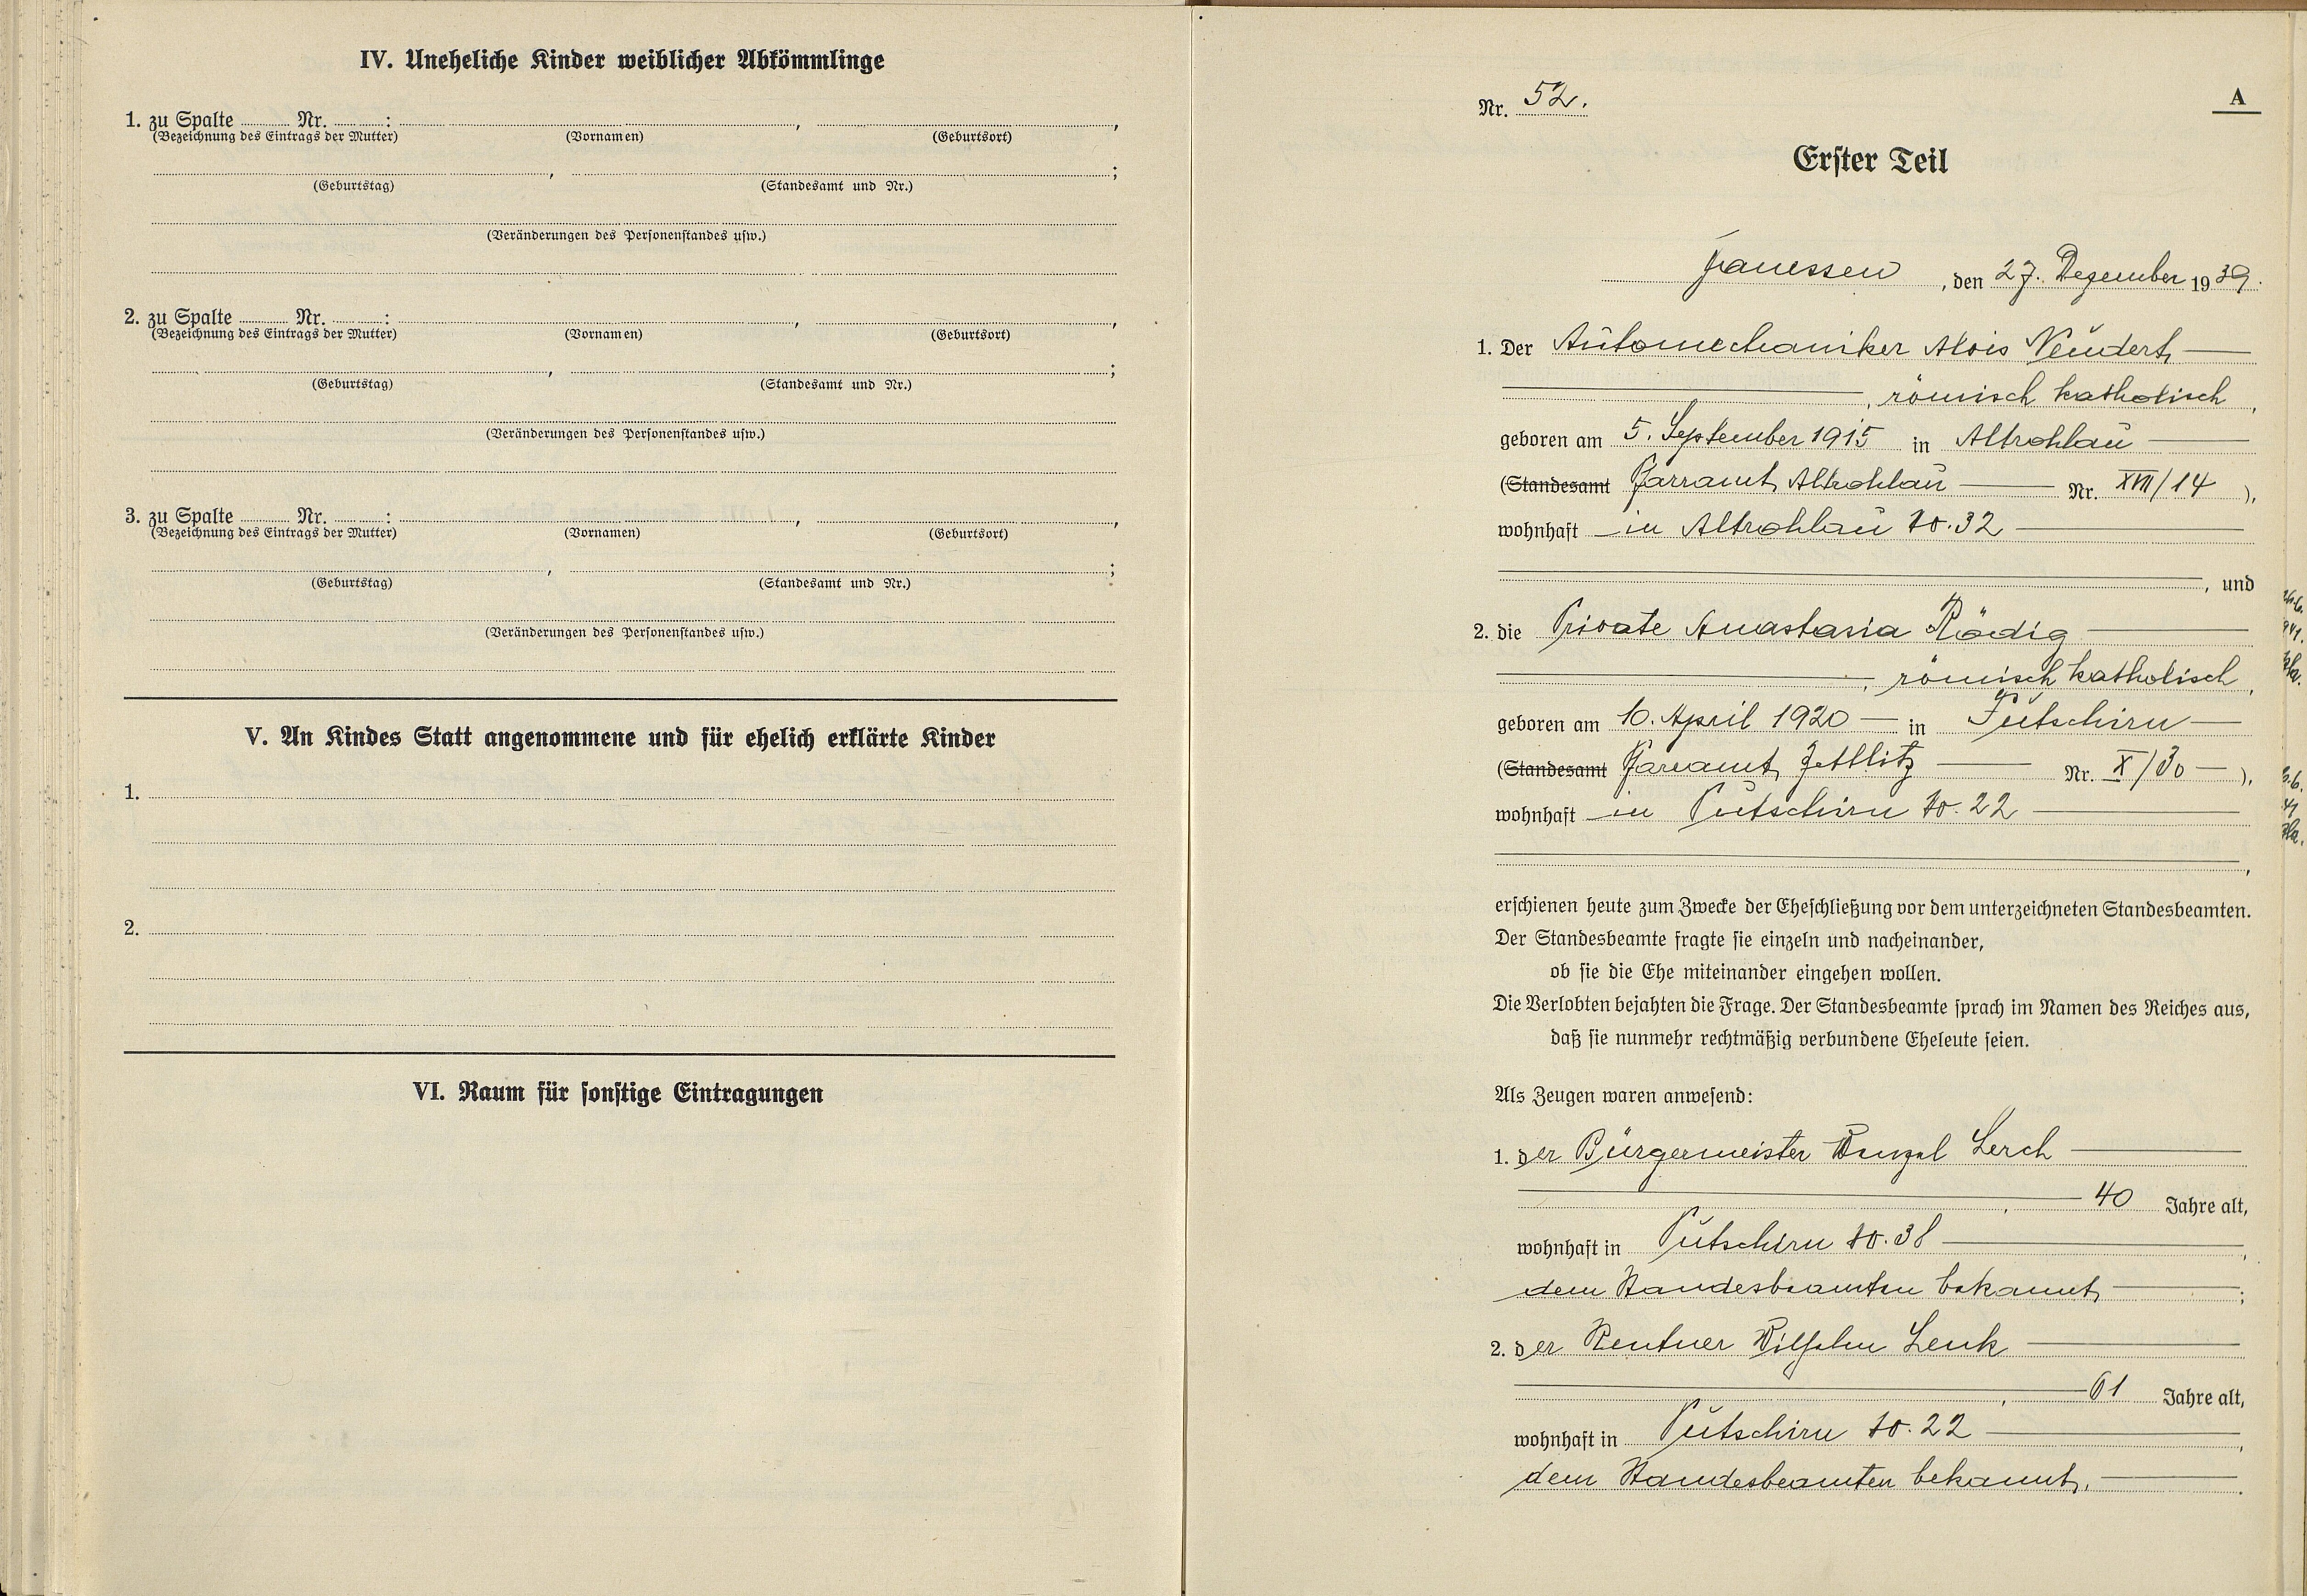 IV. Uneheliche Kinder weiblicher Abkömmlinge
1. zu Spalte ........ Nr. ........: ........, ........,
(Bezeichnung des Eintrags der Mutter) (Vornamen) (Geburtsort)
........, ........;
(Geburtstag) (Standesamt und Nr.)
(Veränderungen des Personenstandes usw.)
2. zu Spalte ........ Nr. ........: ........, ........,
(Bezeichnung des Eintrags der Mutter) (Vornamen) (Geburtsort)
........, ........;
(Geburtstag) (Standesamt und Nr.)
(Veränderungen des Personenstandes usw.)
3. zu Spalte ........ Nr. ........: ........, ........,
(Bezeichnung des Eintrags der Mutter) (Vornamen) (Geburtsort)
........, ........;
(Geburtstag) (Standesamt und Nr.)
(Veränderungen des Personenstandes usw.)
V. An Kindes Statt angenommene und für ehelich erklärte Kinder
1.
2.
VI. Raum für sonstige Eintragungen
Nr. 52.
A
Erster Teil
Janessen, den 27. Dezember 1939.
1. Der Automechaniker Alois Neudert
, römisch katholisch,
geboren am 5. September 1915 in Altrohlau
(Standesamt Pfarramt Altrohlau Nr. XVII/14),
wohnhaft in Altrohlau No. 32
, und
2. die Private Anastasia Rödig
, römisch katholisch,
geboren am 10. April 1920 in Putschirn
(Standesamt Pfarramt Zettlitz Nr. X/30),
wohnhaft in Putschirn No. 22
,
erschienen heute zum Zwecke der Eheschließung vor dem unterzeichneten Standesbeamten.
Der Standesbeamte fragte sie einzeln und nacheinander,
ob sie die Ehe miteinander eingehen wollen.
Die Verlobten bejahten die Frage. Der Standesbeamte sprach im Namen des Reiches aus,
daß sie nunmehr rechtmäßig verbundene Eheleute seien.
Als Zeugen waren anwesend:
1. der Bürgermeister Wenzel Lerch
, 40 Jahre alt,
wohnhaft in Putschirn No. 38,
dem Standesbeamten bekannt;
2. der Rentner Wilhelm Lenk
, 61 Jahre alt,
wohnhaft in Putschirn No. 22,
dem Standesbeamten bekannt.